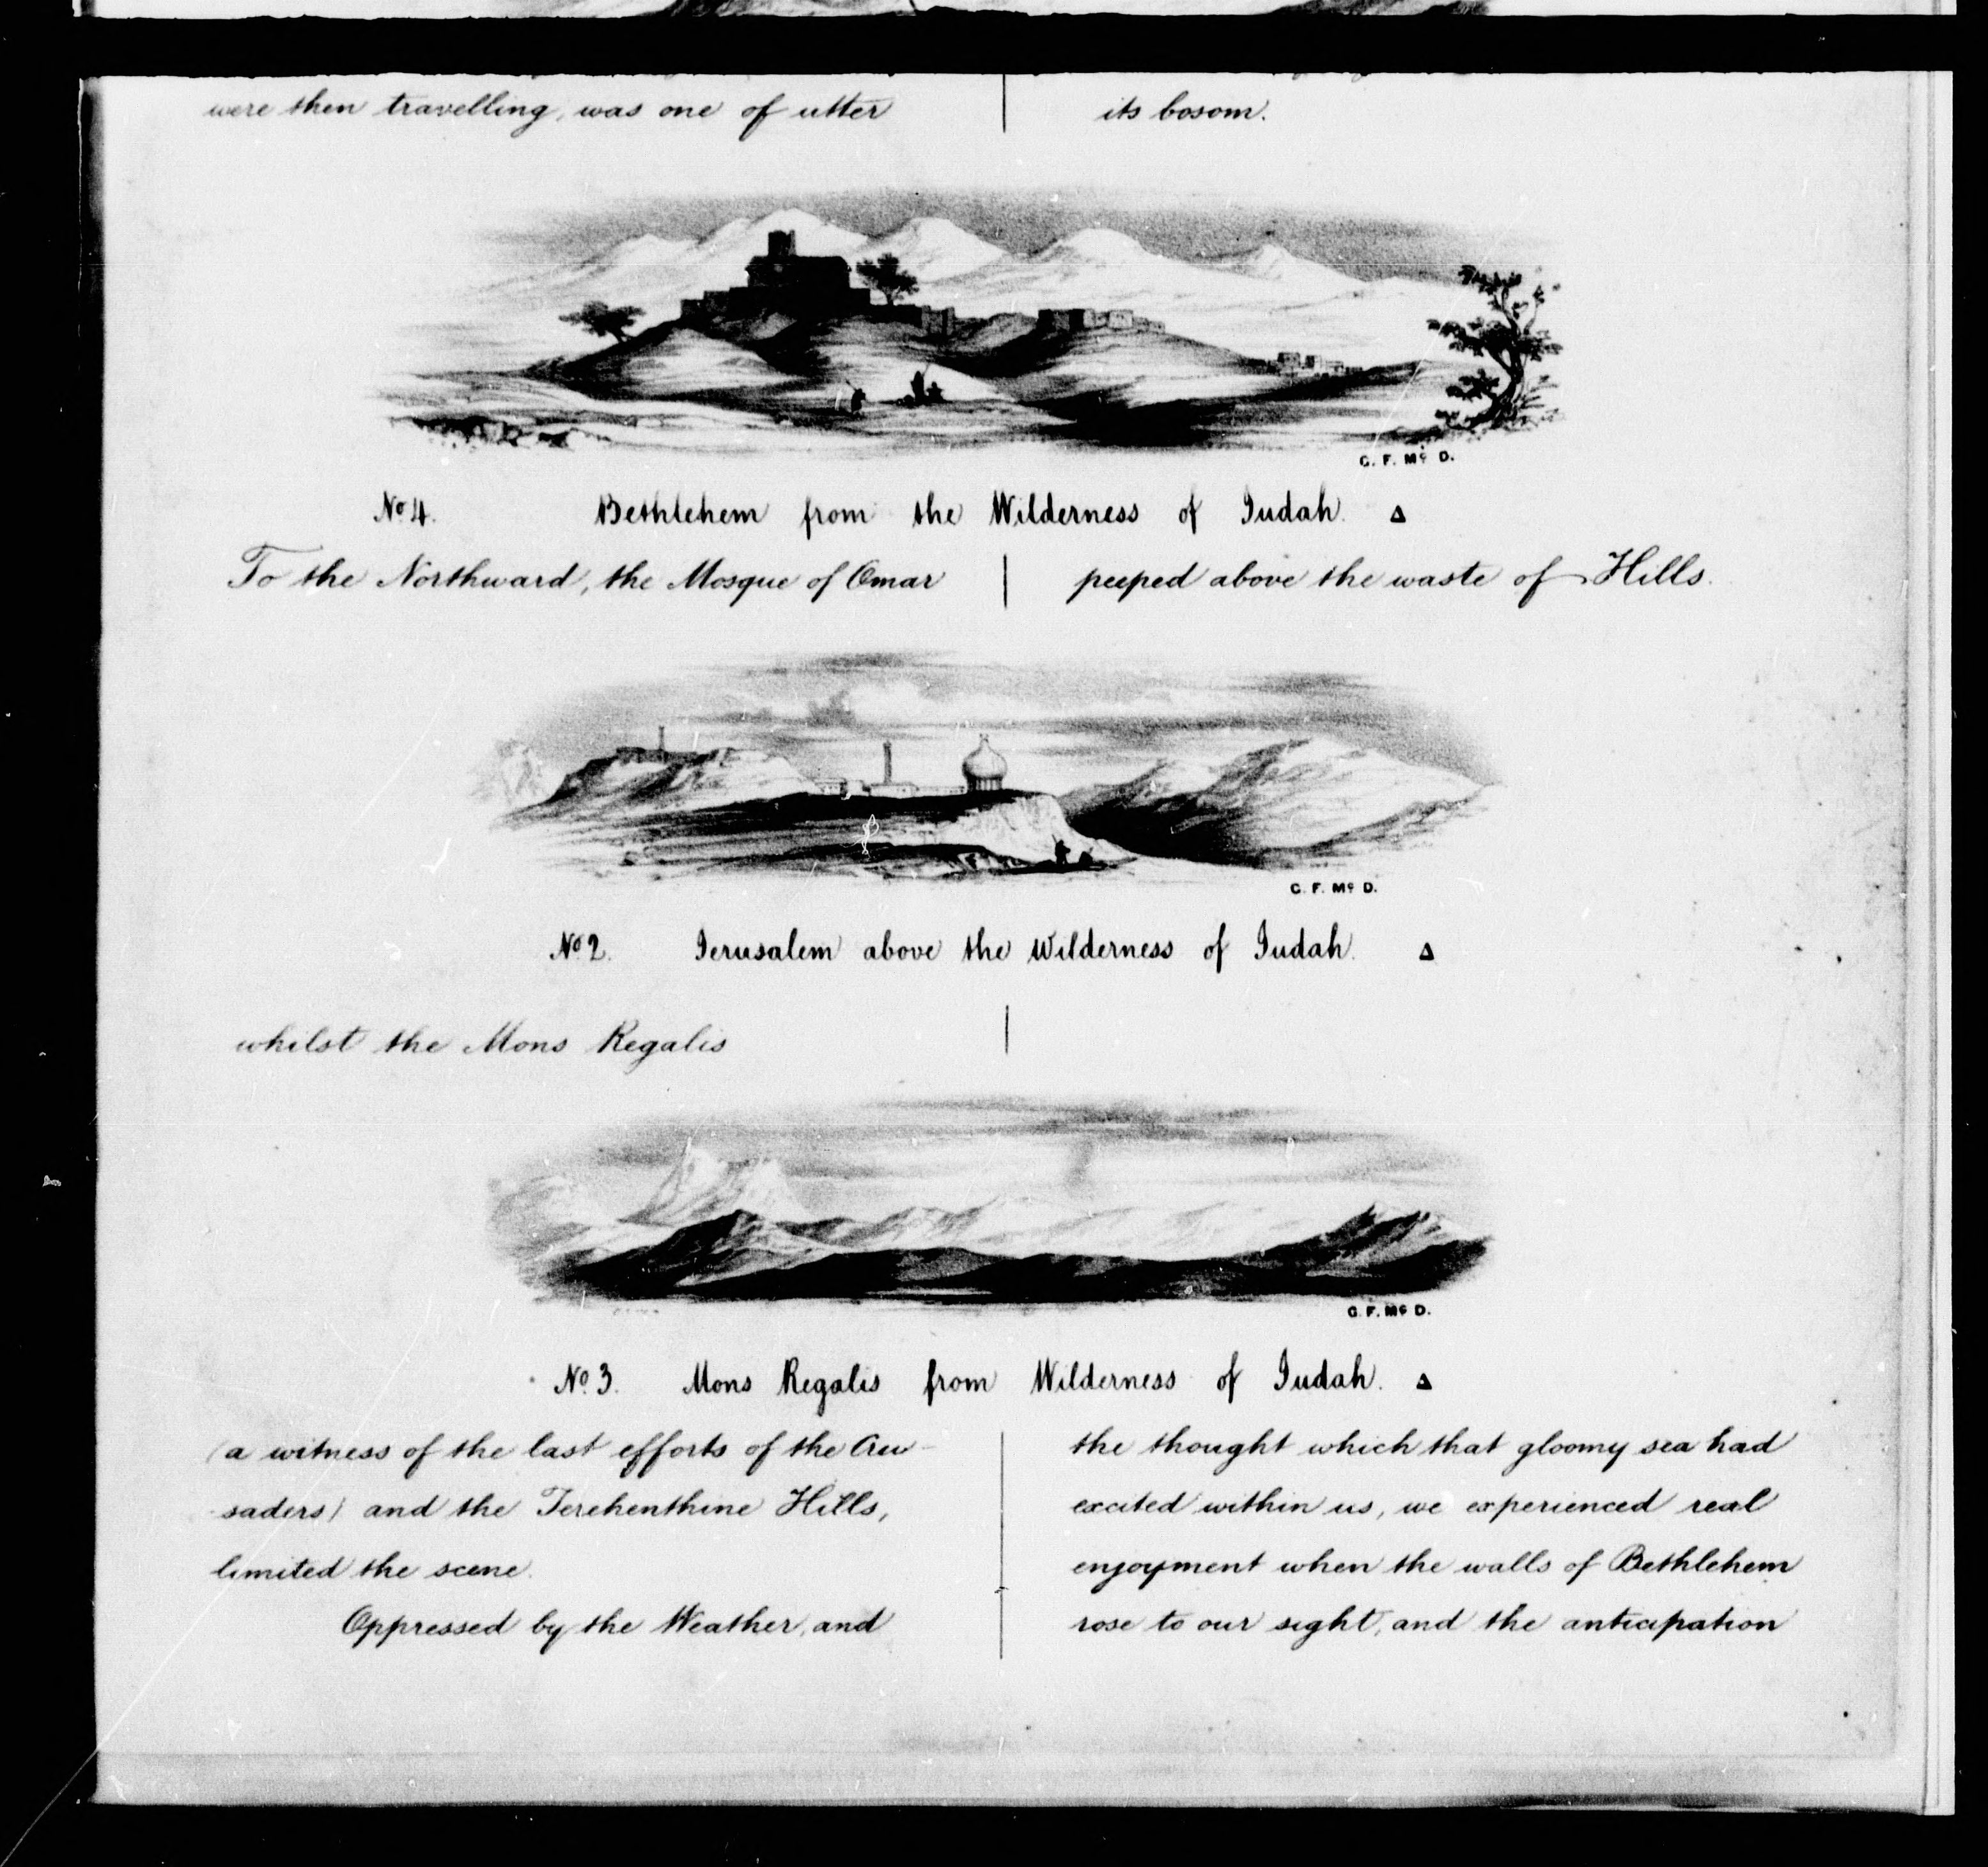 were then travelling, was one of utter
its bosom.
G. F. Mc D.
No 4. Bethlehem from the Wilderness of Judah. Δ
To the Northward, the Mosque of Omar
peeped above the waste of Hills.
G. F. Mc D.
No 2. Jerusalem above the Wilderness of Judah. Δ
whilst the Mons Regalis
G. F. Mc D.
No 3. Mons Regalis from Wilderness of Judah. Δ
(a witness of the last efforts of the Cru-
saders) and the Terehenthine Hills,
limited the scene.
Oppressed by the Weather, and
the thought which that gloomy sea had
excited within us, we experienced real
enjoyment when the walls of Bethlehem
rose to our sight, and the anticipation